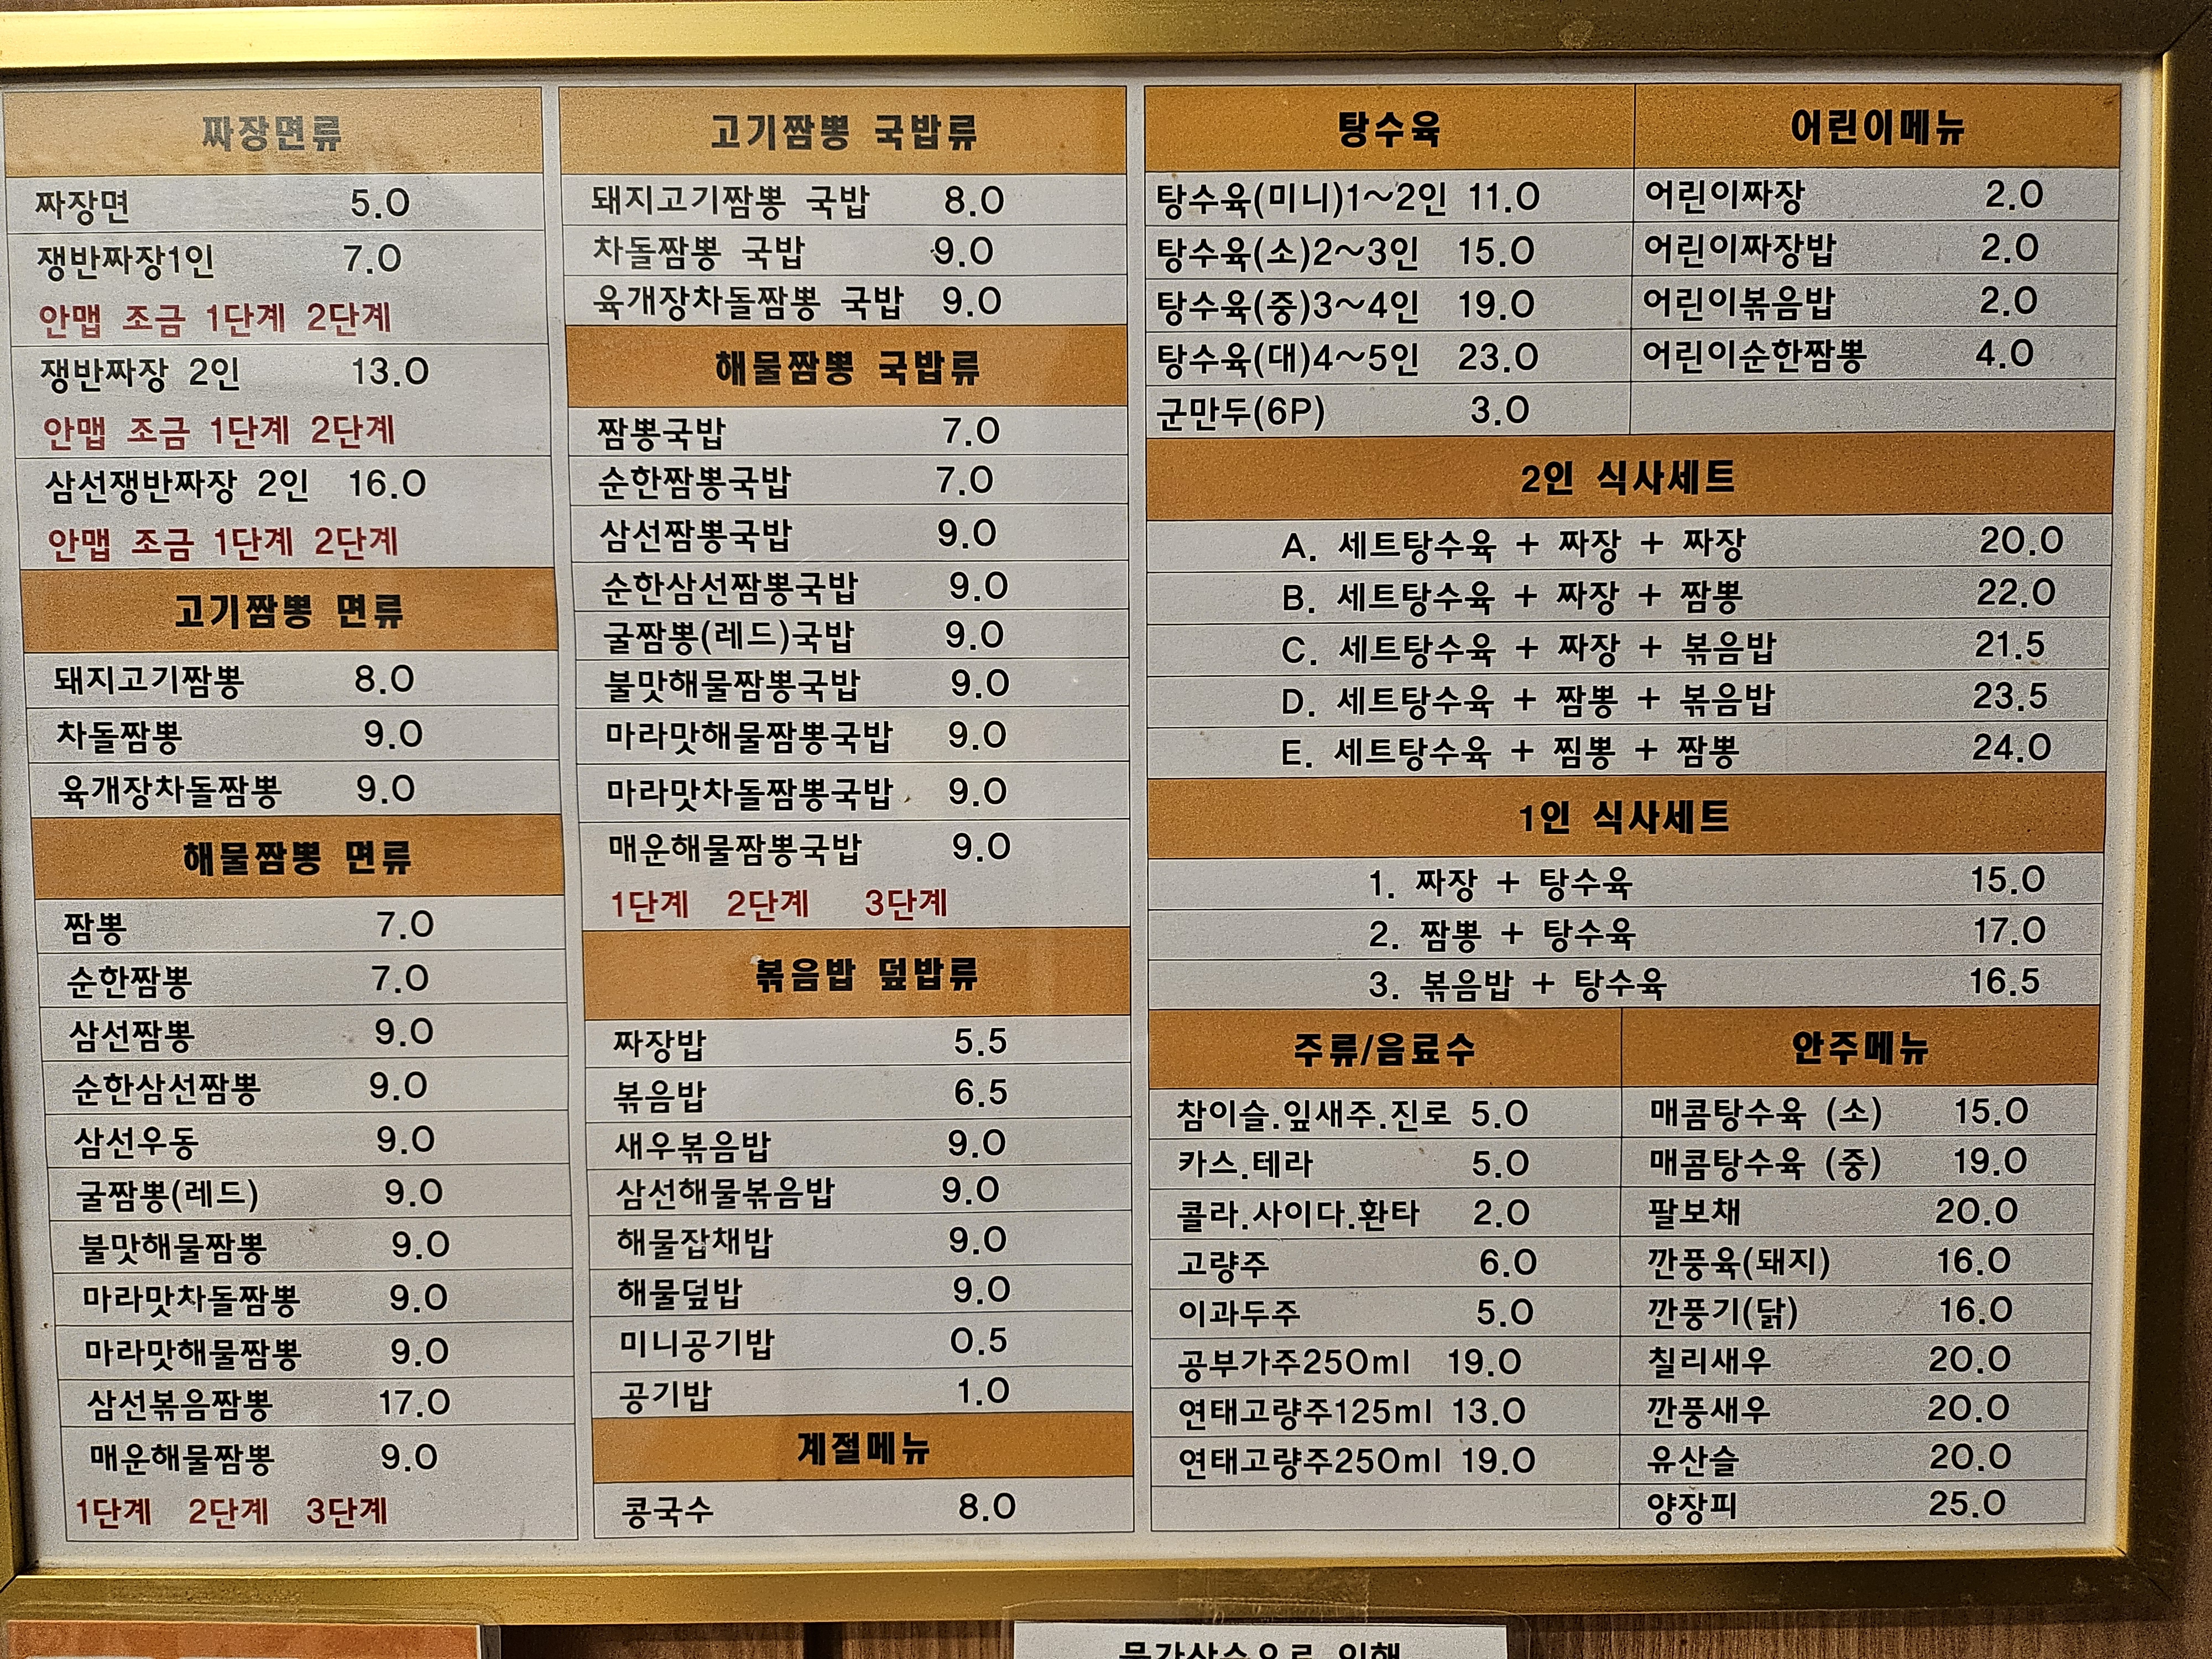 짜장면류
짜장면 5.0
쟁반짜장1인 7.0
안맵 조금 1단계 2단계
쟁반짜장 2인 13.0
안맵 조금 1단계 2단계
삼선쟁반짜장 2인 16.0
안맵 조금 1단계 2단계
고기짬뽕 면류
돼지고기짬뽕 8.0
차돌짬뽕 9.0
육개장차돌짬뽕 9.0
해물짬뽕 면류
짬뽕 7.0
순한짬뽕 7.0
삼선짬뽕 9.0
순한삼선짬뽕 9.0
삼선우동 9.0
굴짬뽕(레드) 9.0
불맛해물짬뽕 9.0
마라맛차돌짬뽕 9.0
마라맛해물짬뽕 9.0
삼선볶음짬뽕 17.0
매운해물짬뽕 9.0
1단계 2단계 3단계
고기짬뽕 국밥류
돼지고기짬뽕 국밥 8.0
차돌짬뽕 국밥 9.0
육개장차돌짬뽕 국밥 9.0
해물짬뽕 국밥류
짬뽕국밥 7.0
순한짬뽕국밥 7.0
삼선짬뽕국밥 9.0
순한삼선짬뽕국밥 9.0
굴짬뽕(레드)국밥 9.0
불맛해물짬뽕국밥 9.0
마라맛해물짬뽕국밥 9.0
마라맛차돌짬뽕국밥 9.0
매운해물짬뽕국밥 9.0
1단계 2단계 3단계
볶음밥 덮밥류
짜장밥 5.5
볶음밥 6.5
새우볶음밥 9.0
삼선해물볶음밥 9.0
해물잡채밥 9.0
해물덮밥 9.0
미니공기밥 0.5
공기밥 1.0
계절메뉴
콩국수 8.0
탕수육
탕수육(미니)1~2인 11.0
탕수육(소)2~3인 15.0
탕수육(중)3~4인 19.0
탕수육(대)4~5인 23.0
군만두(6P) 3.0
어린이메뉴
어린이짜장 2.0
어린이짜장밥 2.0
어린이볶음밥 2.0
어린이순한짬뽕 4.0
2인 식사세트
A. 세트탕수육 + 짜장 + 짜장 20.0
B. 세트탕수육 + 짜장 + 짬뽕 22.0
C. 세트탕수육 + 짜장 + 볶음밥 21.5
D. 세트탕수육 + 짬뽕 + 볶음밥 23.5
E. 세트탕수육 + 찜뽕 + 짬뽕 24.0
1인 식사세트
1. 짜장 + 탕수육 15.0
2. 짬뽕 + 탕수육 17.0
3. 볶음밥 + 탕수육 16.5
주류/음료수
참이슬.잎새주.진로 5.0
카스.테라 5.0
콜라.사이다.환타 2.0
고량주 6.0
이과두주 5.0
공부가주250ml 19.0
연태고량주125ml 13.0
연태고량주250ml 19.0
안주메뉴
매콤탕수육 (소) 15.0
매콤탕수육 (중) 19.0
팔보채 20.0
깐풍육(돼지) 16.0
깐풍기(닭) 16.0
칠리새우 20.0
깐풍새우 20.0
유산슬 20.0
양장피 25.0
물가상승으로 인해